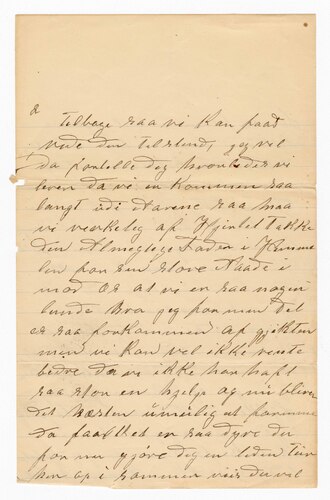 2
tilbage saa vi kan faad
vide den tilstand, jeg vil
da fortelle deg hvorledes vi
lever da vi er kommen saa
langt udi Aarene saa maa
vi verkelig af Hjertet takke
den Almegtege Fader i Himme
len for sin store Naade i
mod os at vi er saa nogen
lunde bra jeg for men det
er saa forkommen af gjikten
men vi kan vel ikke vente
bedre da vi ikke har haft
saa stor en hjelp og nu bliver
det næsten umulig at
da faalket er saa dyre du
for nu gjøre deg en liden tur
her op i sommer viis du vel